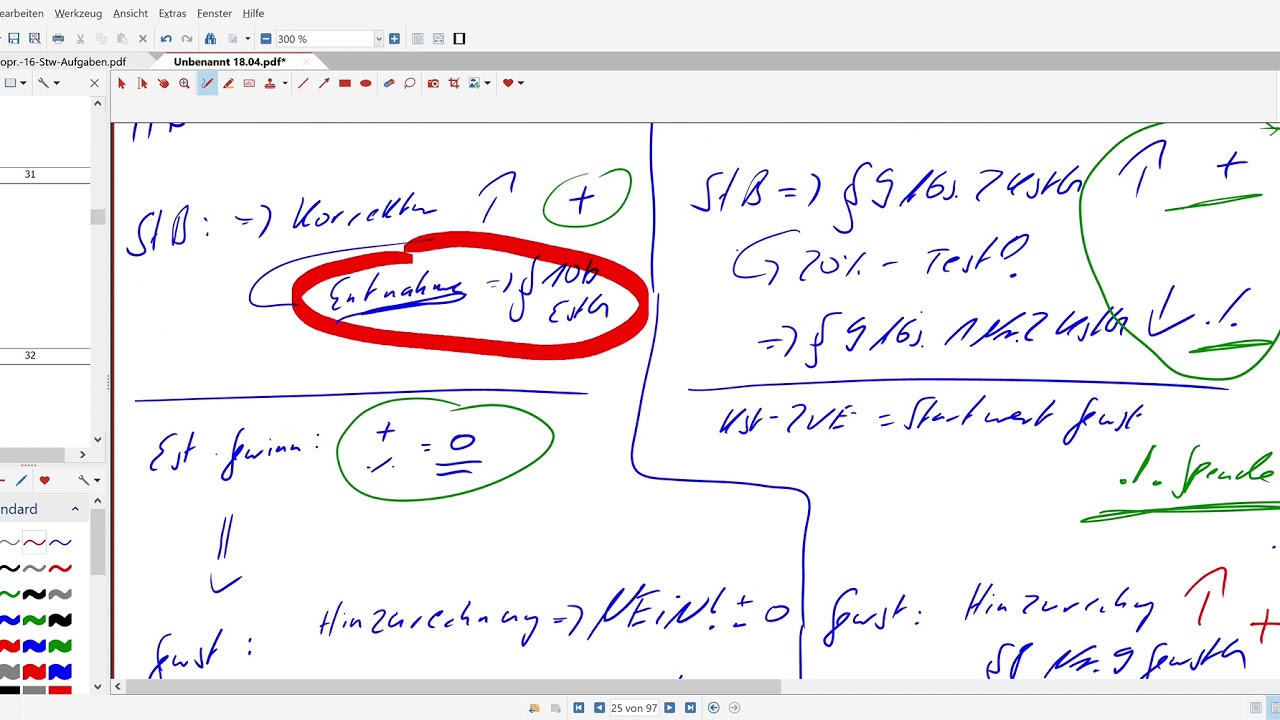 earbeiten Werkzeug Ansicht Extras Fenster Hilfe
300 %
opr.-16-Stw-Aufgaben.pdf
Unbenannt 18.04.pdf*
31
32
ndard
StB: => Korrektur ↑ +
Entnahme => § 10b
EStG
Est. Gewinn: + ./. = 0
Hinzurechnung => NEiN! ± 0
Gewst:
StB => § 9 Abs. 2 KStG ↑ +
20% - Test?
=> § 9 Abs. 1 Nr. 2 KStG ↓ ./.
Kst-ZVE = Startwert Gewst
./. Spende
Gewst: Hinzurechng ↑ +
§8 Nr. 9 GewStG
25 von 97